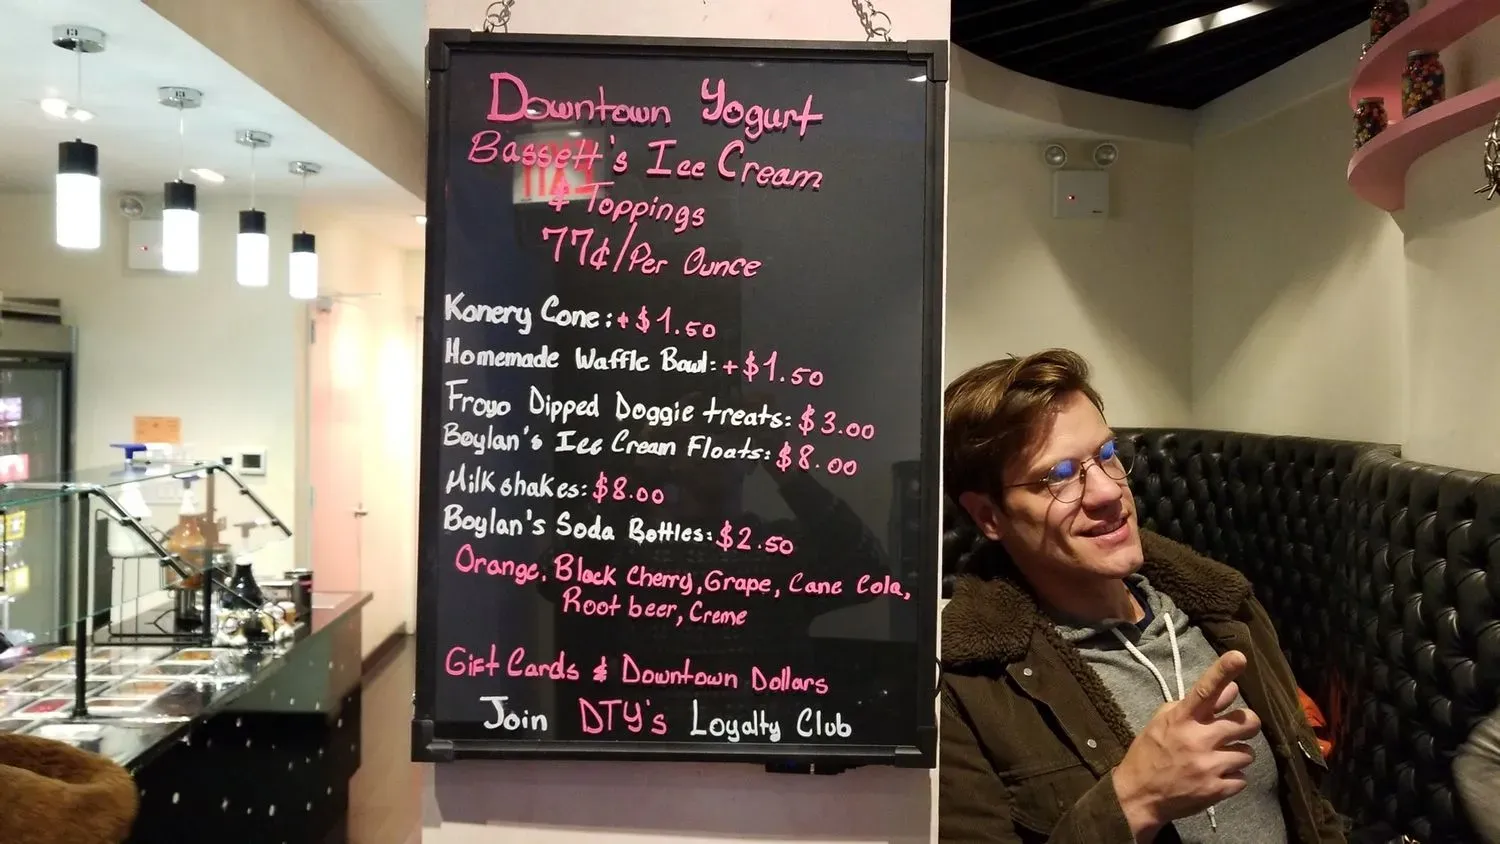 Downtown Yogurt
Bassett's Ice Cream
& Toppings
77¢/Per Ounce
Konery Cone: + $1.50
Homemade Waffle Bowl: + $1.50
Froyo Dipped Doggie treats: $3.00
Boylan's Ice Cream Floats: $8.00
Milkshakes: $8.00
Boylan's Soda Bottles: $2.50
Orange, Black Cherry, Grape, Cane Cola,
Root beer, Creme
Gift Cards & Downtown Dollars
Join DTY's Loyalty Club